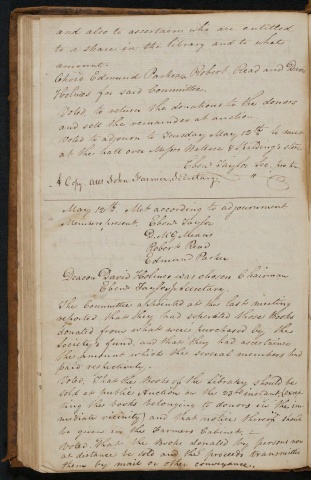 and also to ascertain who are entitled
to a share in the library and to what
amount.
Chose Edmund Parker, Robert Read and David
Holmes for said Committee.
Voted to return the donations to the donors
and sell the remainder at auction
Voted to adjourn to Tuesday May 12th to meet
at the hall over Messrs Wallace & Store
Eben Taylor Sec. pro tem
A Copy. Attest John Farmer, Secretary.
May 12th. Met according to adjournment
Members present, Eben Taylor
D. McG Means
Robert Read
Edmund Parker
Deacon David Holmes was chosen Chairman
Eben Taylor, Secretary.
The Committee appointed at the last meeting
reported that they had selected those Books
donated from what were purchased by the
Society's fund, and that they had ascertained
the amount which the several members had
paid respectively.
Voted, That the Books of the Library should be
sold at public Auction on the 23d instant, (excep
ting the books belonging to donors in the im
mediate vicinity) and that notice thereof should
be given in the Farmers Cabinet.
Voted That the Books donated by persons now
at distance be sold and the proceeds transmitted
them by mail or other conveyance.